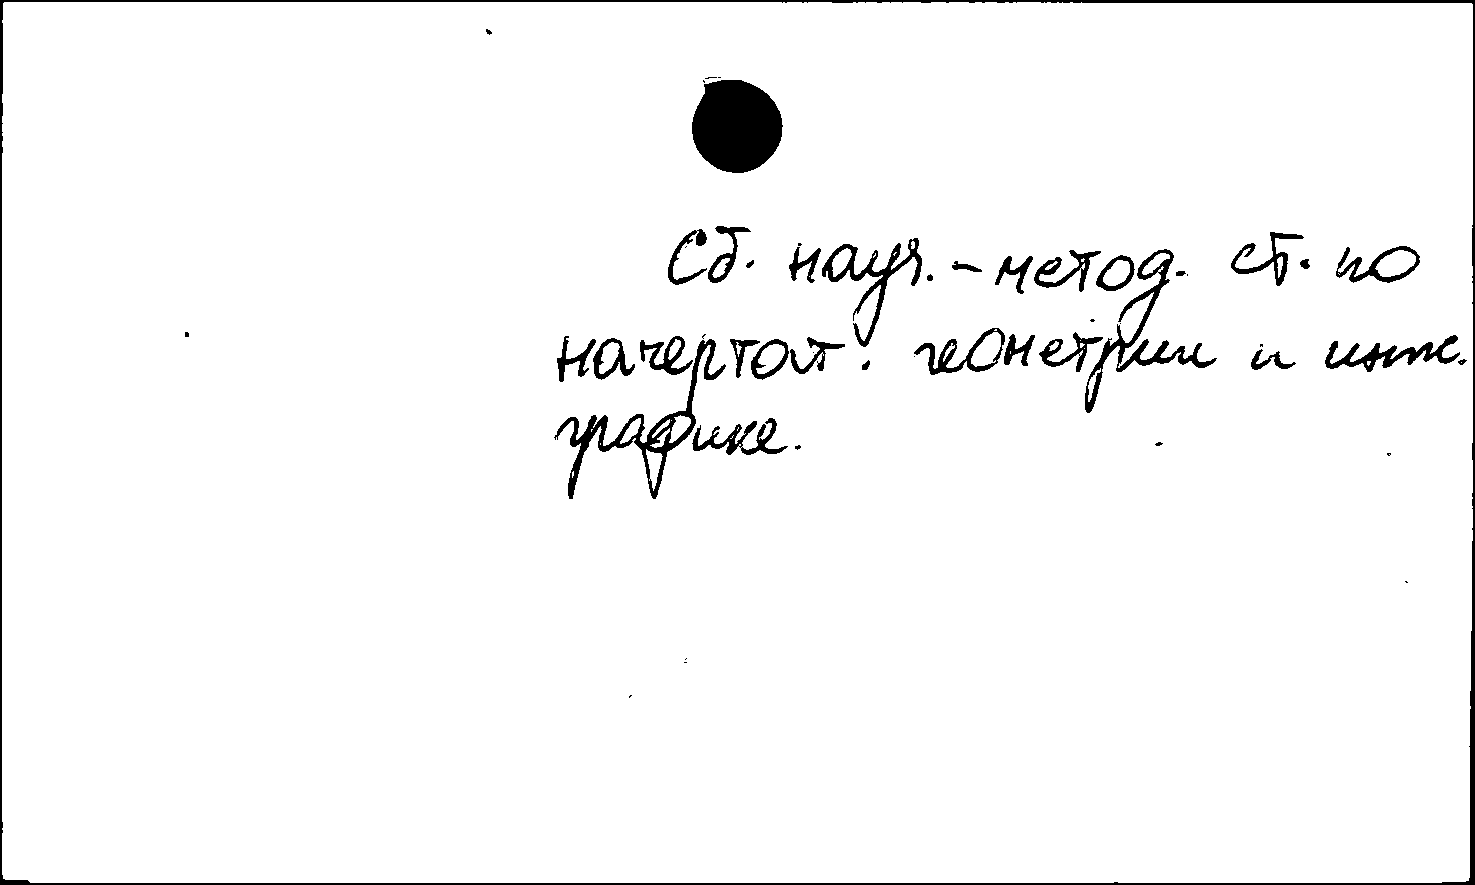 Сб. науч.-метод. ст. по
начертат. геометрии и инж.
графике.